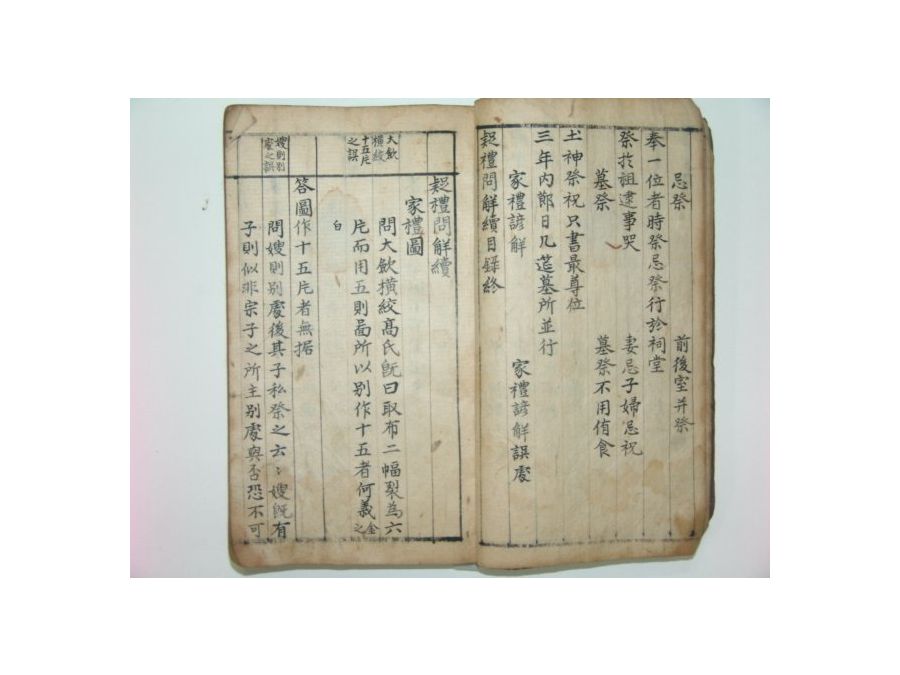 忌祭　前後室并祭
奉一位者時祭忌祭行於祠堂
祭於祖逮事哭　妻忌子婦忌祝
墓祭　墓祭不用侑食
土神祭祝只書最尊位
三年內節日几筵墓所並行
家禮諺解　家禮諺解誤處
疑禮問解續目錄終
疑禮問解續
家禮圖
大斂
橫絞
十五片
之誤
問大斂橫絞高氏旣曰取布二幅裂為六
片而用五則圖所以別作十五者何義金
之
白
答圖作十五片者無据
嫂則別
處之誤
問嫂則別處後其子私祭之云云嫂旣有
子則似非宗子之所主別處與否恐不可